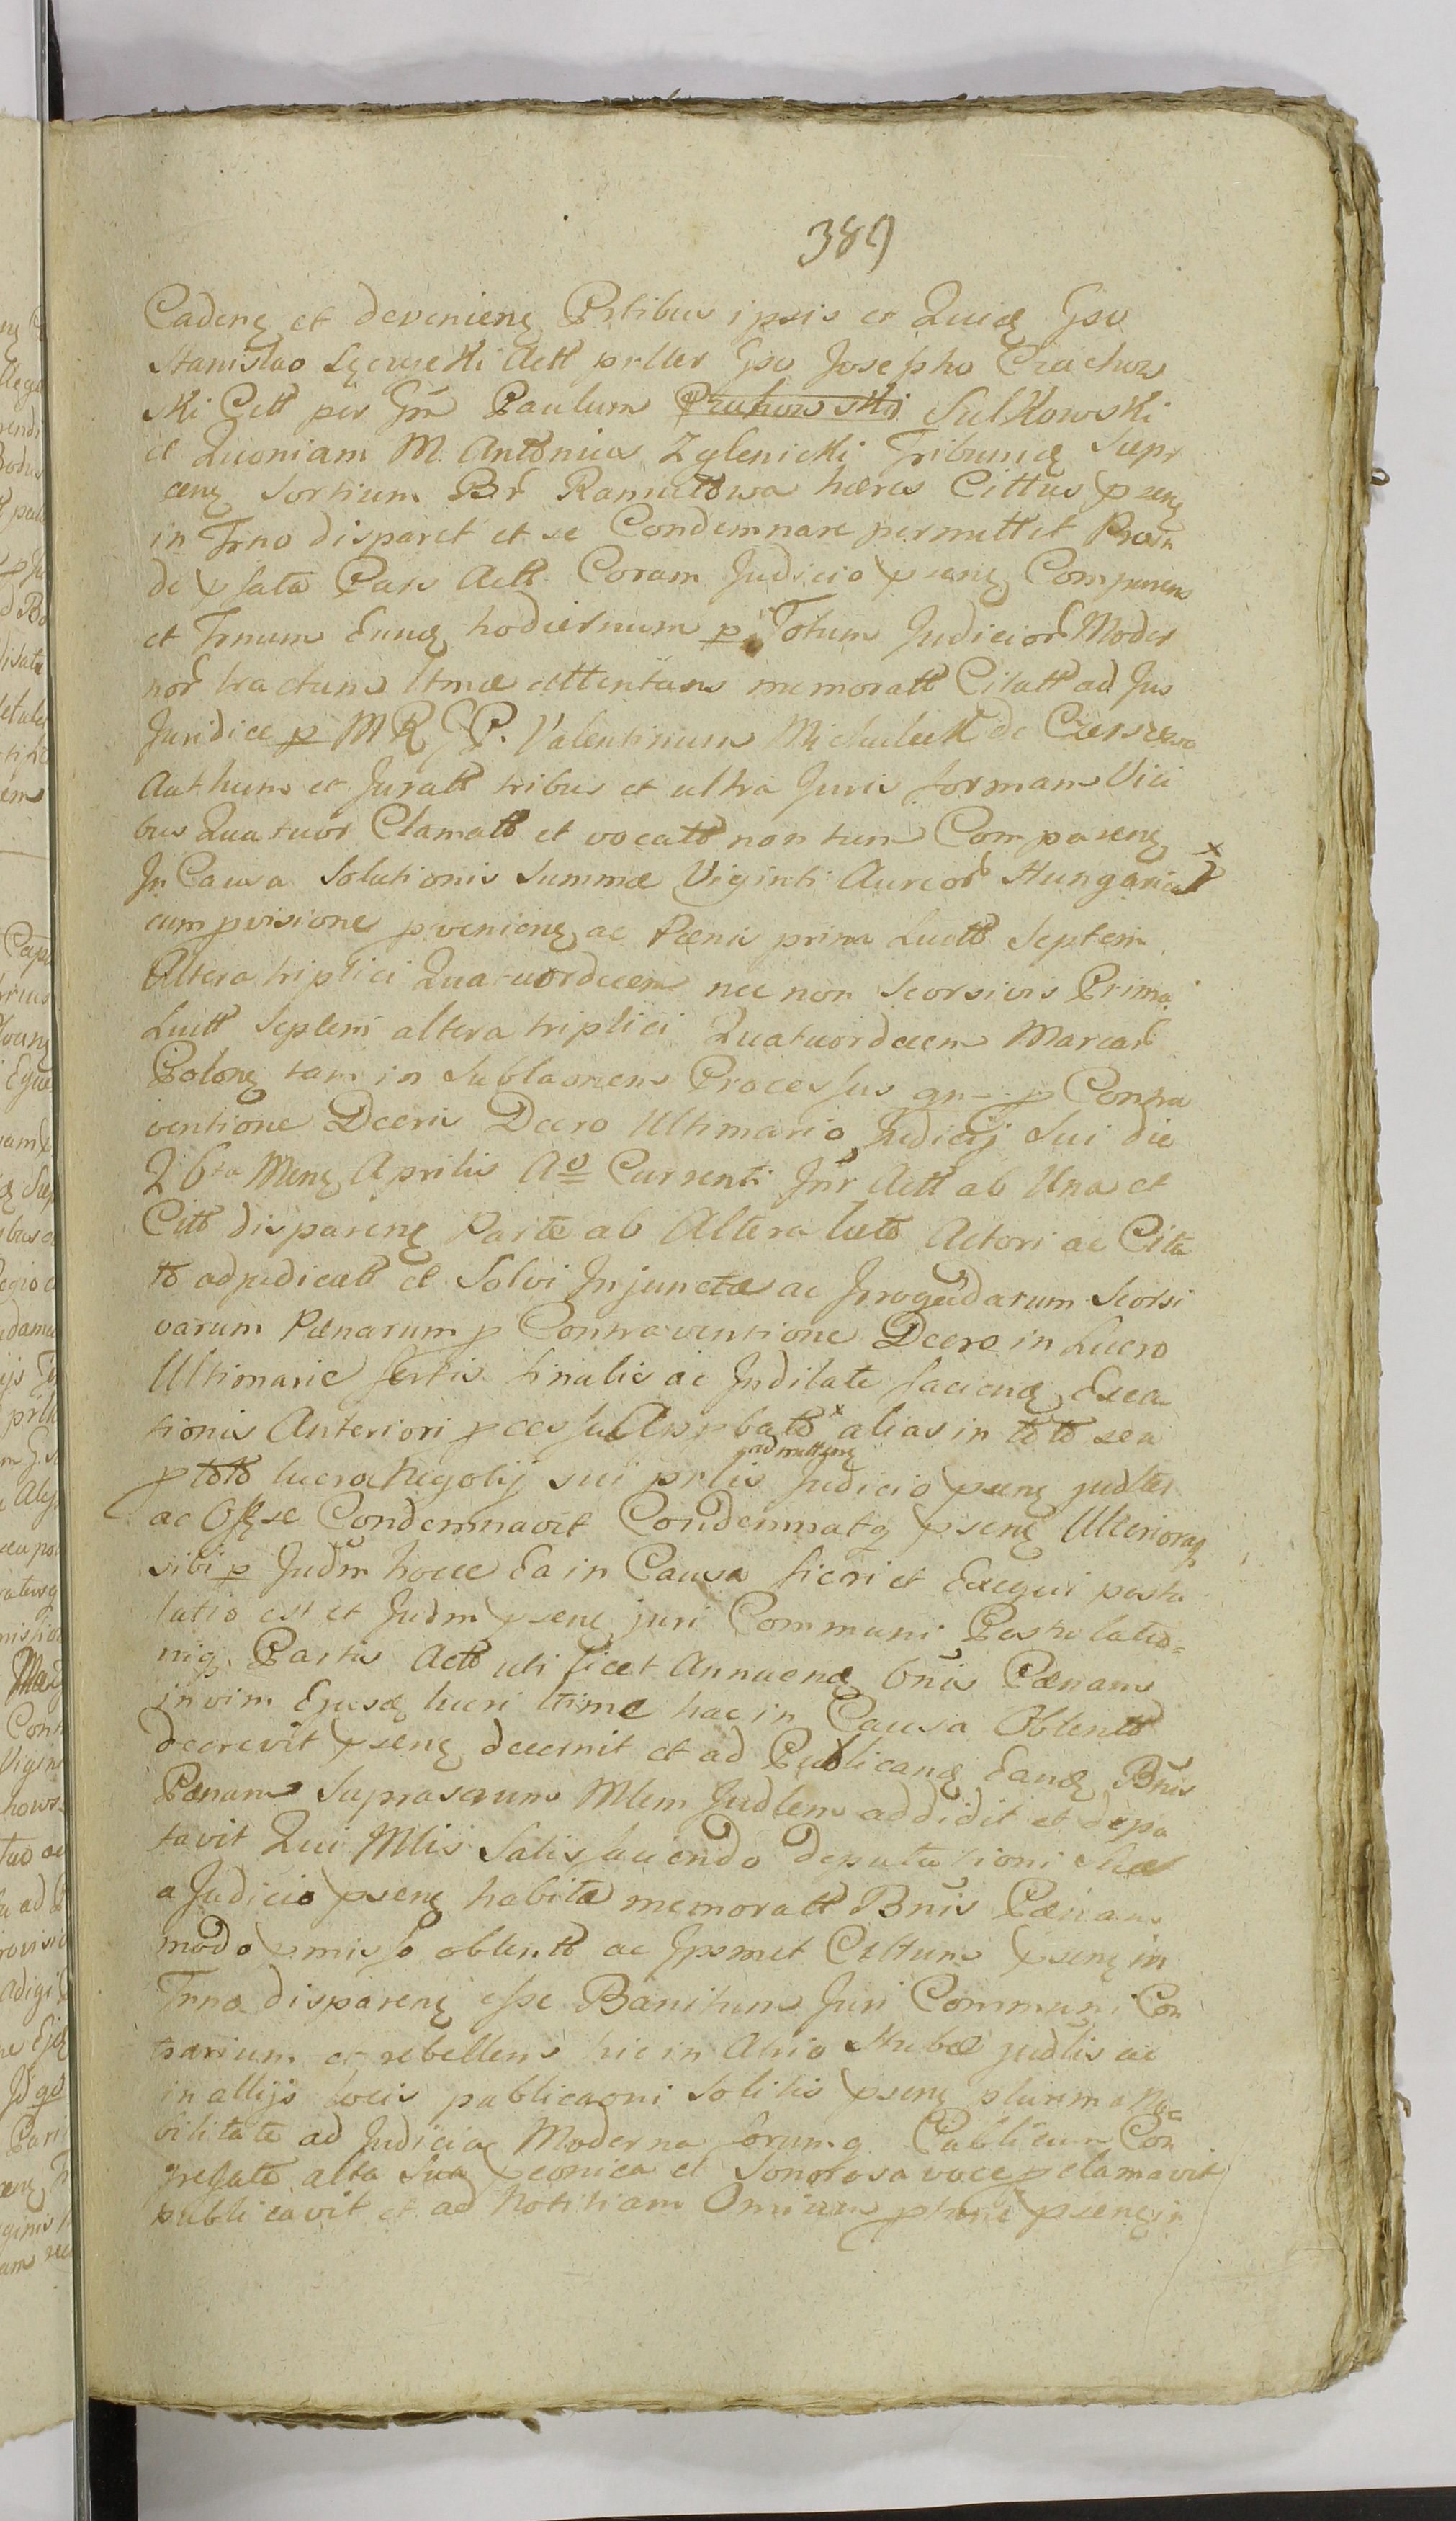 389
Cadenȩ et devenienȩ Ptibus ipsis et Quidȩ Gso
Stanislao Actt prller Gso Josepho Ciachow
ski Citt per Gm Paulum Sulkowski
et Quoniam M. Antonius Zylenicki Tribunidȩ
cenȩ Sortium Br Ramutowa hæres Cittus psenȩ
in Trno disparet et se Condemnare permittit Proin
de Pars Actt Coram Judicio psenȩ Comparens
et Trnum Eunȩ hodiernum p Totum Judicior Moder
nor tractum ltmæ attentans memoratt Citatt ad Jus
Juridice p MRGP. Valentinum de
Authum et Juratt tribus et ultra Juris formam Vici
bus Quatuor Clamatt et vocatt non tum Comparenȩ
In Causa Solutionis Summæ Viginti Aureor Hungarical x
cum pvisione pvenienȩ ac Pænis prima Luctt Septem
Altera triplici Quatuordecem nec non Seorsivis Prima
Luctt Septem altera triplici Quatuordecem Marcar
Polonȩ tam in Sublaonem Processus qn p Contra
ventione Dceris Dcero Ultimario Judicij Sui die
26ta Menȩ Aprilis Ao Currenti Inr Actt ab Una et
Citt disparenȩ Parte ab Altera Actori ac Cita
to adjudicatt et Solvi Injunctæ ac Irrogandarum Seorsi
varum Pænarum p Contraventione Dcero in Lucro
Ultimarie finalis ac Indilate faciendȩ Exea
tionis Anteriori pcessu Apprbatt x alias in toto seu
p toto lucro Negotij sui prlis admittenȩ Judicio psenȩ judlter
ac Condemnavit Condemnatq psenȩ Ulterioraq
sibi p Judm hocce Ea in Causa fieri et Exequi postu
latio est et Judm psenȩ juri Communi Postulatio=
niq Partis Actt uti licet Annuendȩ Bnis Pænam
in vim Ejusdȩ lucri ltimæ hac in Causa Obtentt
decrevit psenȩ decernit et ad Publicandȩ Eandȩ Bnis
Pænam Suprascrum Mlem Judlem addidit et depu
tavit Qui Mlis Satisfaciendo deputationi Suæ
a Judicio psenȩ habitæ memoratt Bnis Pænam
modo pmisso obtentt ac Ipsmet Cittum psenȩ in
Trno disparenȩ esse Banitum Juri Communi Con
trarium et rebellem hic in Atrio Stubæ judlis ac
in allijs locis publicaoni Solitis psenȩ plurima No
bilitate ad Judicia Moderna forumq Publicum Con
gregate alta Sua et Sonorosa voce pclamavit
publicavit et ad Notitiam Omium psenȩ in